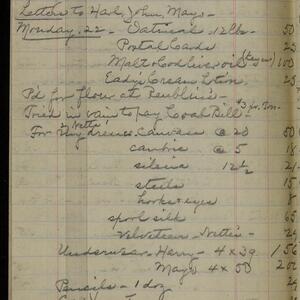 Letters to Harl, John, Mays -
Monday. 22 - Oatmeal 12 lb - 50
Postal Cards 25
Malt & Cod liver oil 100
Eady's Cream Lotion 25
Pd for flour at Reublins -
Tried in vain to pay Coal Bill -
For my dress - Canvass @ 20 50
cambric @ 5 18
silesia 12 1/2
steels 15
hooks & eyes 8
spool silk 65
Velveteen - Nettie -
Underwear Harry - 4 x 39 156
Mays 4 x 50 200
Pencils - 1 doz